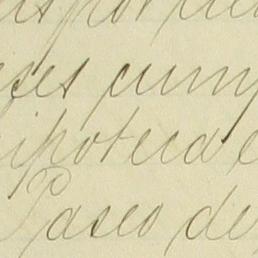 eses cump
hipoteca e
Paseo de